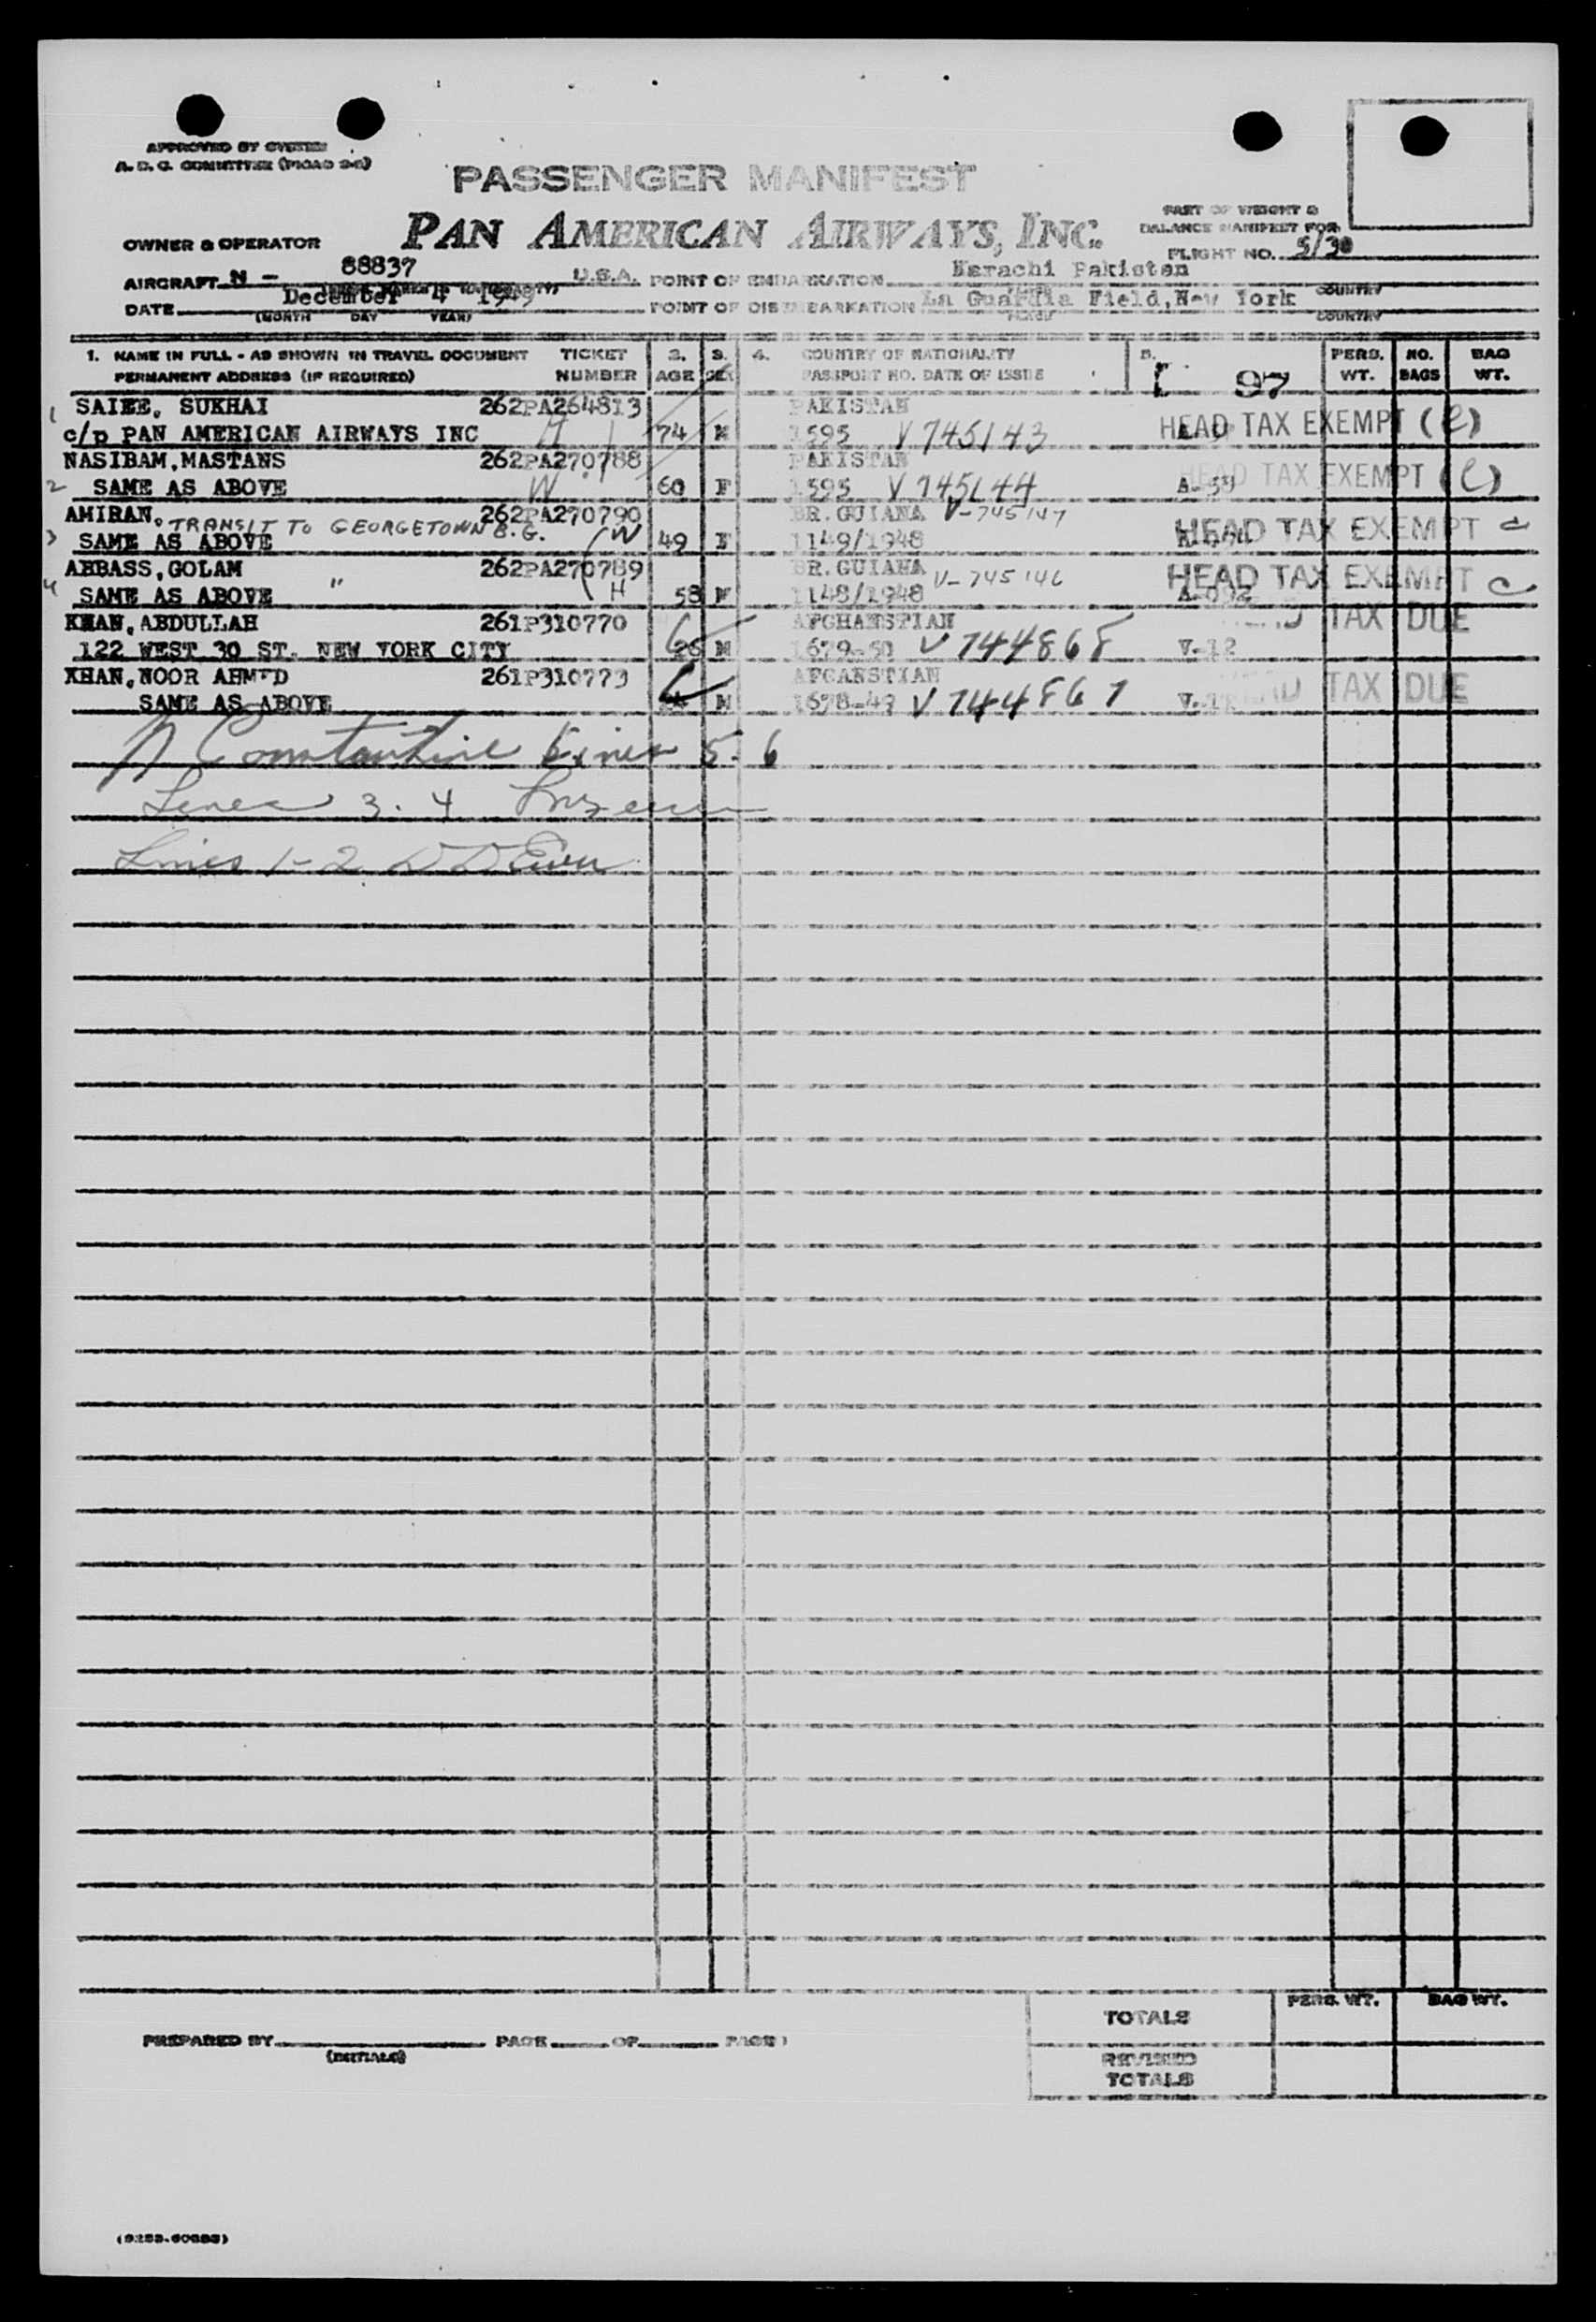 APPROVED BY SYSTEM
A. D. C. COMMITTEE
PASSENGER MANIFEST
PAN AMERICAN AIRWAYS, INC.
PART OF WEIGHT &
BALANCE MANIFEST FOR
OWNER & OPERATOR
FLIGHT NO. 5/30
AIRCRAFT N - 88837 U.S.A. POINT OF EMBARKATION Karachi Pakistan
COUNTRY
DATE December 4 1949 POINT OF DISEMBARKATION La Guardia Field, New York
(MONTH DAY YEAR) PLACE COUNTRY
1. NAME IN FULL - AS SHOWN IN TRAVEL DOCUMENT TICKET 2. 3. 4. COUNTRY OF NATIONALITY 5. PERS. NO. BAG
PERMANENT ADDRESS (IF REQUIRED) NUMBER AGE SEX PASSPORT NO. DATE OF ISSUE 97 WT. BAGS WT.
1 SAIEE, SUKHAI 262PA264813 PAKISTAN
c/p PAN AMERICAN AIRWAYS INC H 74 M 1595 V 745143 HEAD TAX EXEMPT (C)
NASIBAM, MASTANS 262PA270788 PAKISTAN
2 SAME AS ABOVE W 60 F 1595 V 745144 HEAD TAX EXEMPT (C)
AMIRAN, 262PA270790 BR. GUIANA V-745147
TRANSIT TO GEORGETOWN B.G.
3 SAME AS ABOVE W 49 F 1149/1948 HEAD TAX EXEMPT C
ABBASS, GOLAM 262PA270789 BR. GUIANA V-745146
4 SAME AS ABOVE " H 58 M 1148/1948 HEAD TAX EXEMPT C
KHAN, ABDULLAH 261P310770 AFGHANSTIAN TAX DUE
122 WEST 30 ST. NEW YORK CITY 26 M 1679-50 V 744868 V-12
KHAN, NOOR AHMED 261P310773 AFGANSTIAN TAX DUE
SAME AS ABOVE M 1678-49 V 744867
N Constantine Lines 5-6
Lines 3-4
Lines 1-2
TOTALS PERS. WT. BAG WT.
PREPARED BY PAGE OF PAGES
(INITIALS)
REVISED
TOTALS